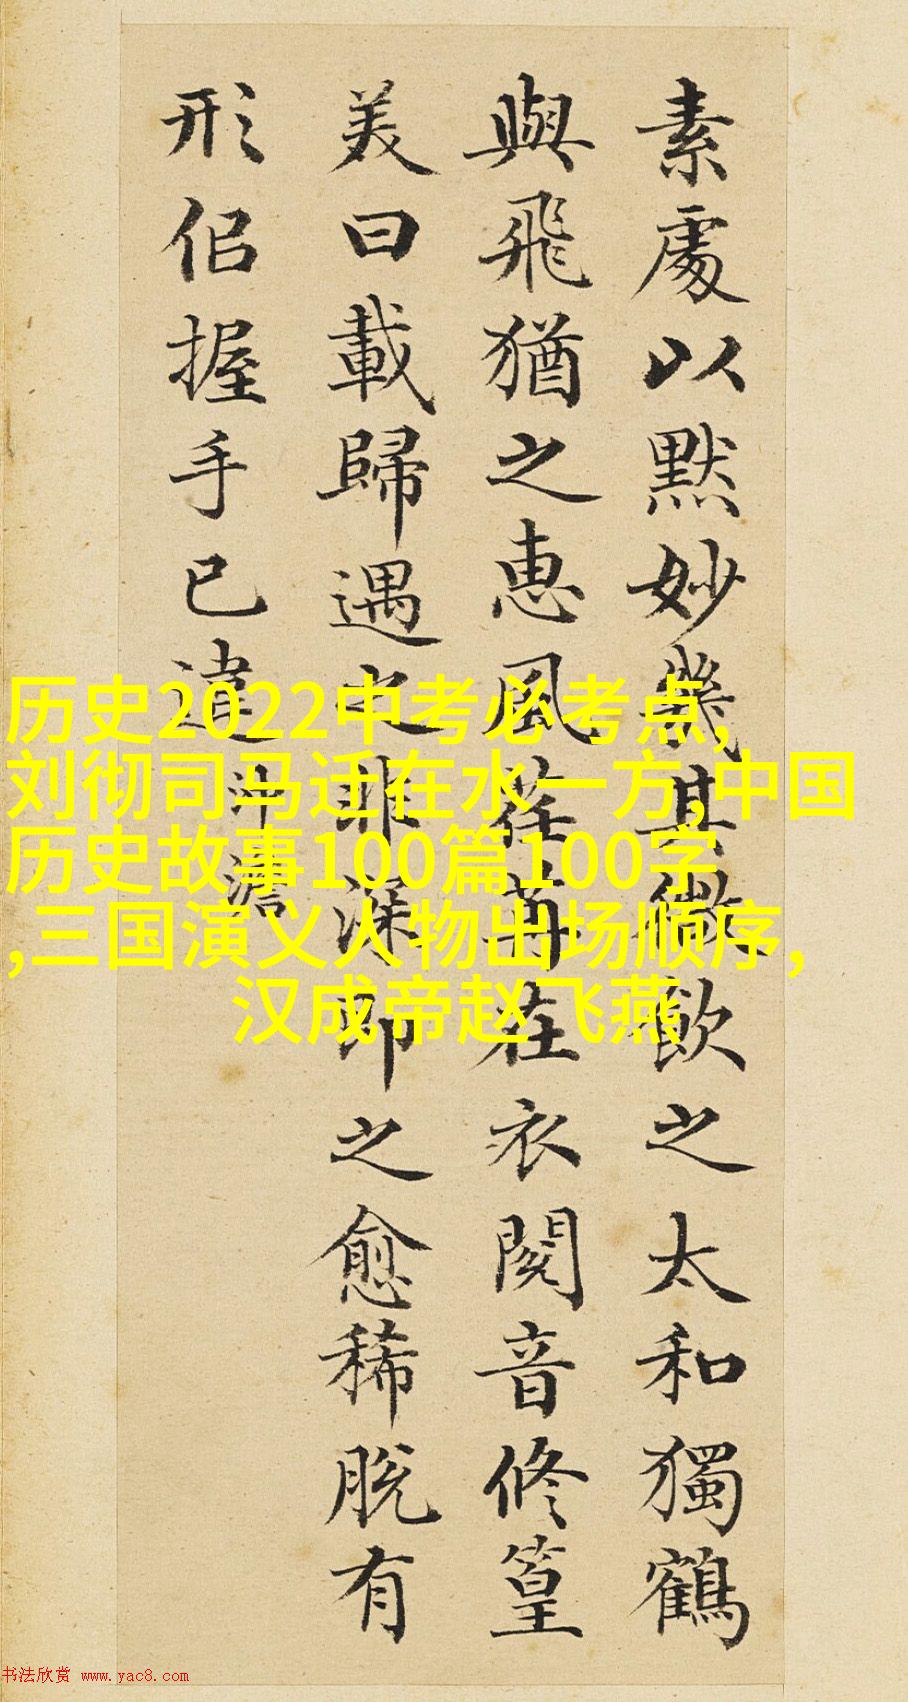 素處以默妙幾其微飲之太和獨鶴
與飛猶之惠風荏苒在衣閱音修篁
美曰載歸遇之非深即之愈稀脫有
形佀握手已違
沖澹
历史2022中考必考点,
刘彻司马迁在水一方,中国
历史故事100篇100字
,三国演义人物出场顺序,
汉成帝赵飞燕
书法欣赏 www.yac8.com